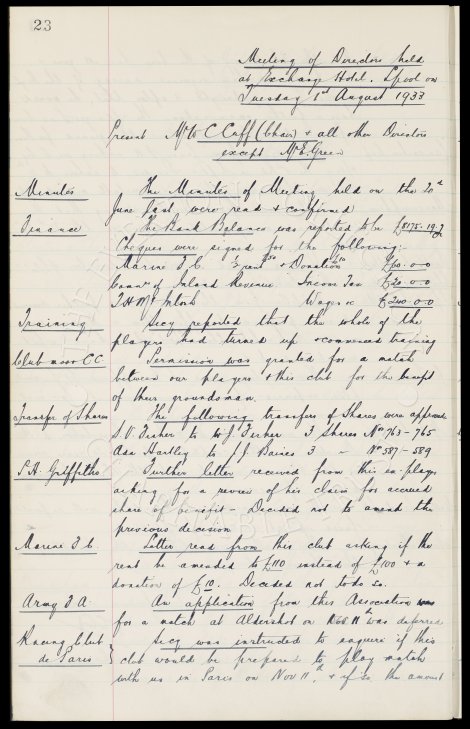 23
Meeting of Directors held
at Exchange Hotel. Lpool on
Tuesday 1st August 1933
Present Mr W C Cuff (Chair) & all other Directors
except Mr E. Green
Minutes The Minutes of Meeting held on the 20th
June last were read & confirmed
Finance The Bank Balance was reported to be £8175.19.
Cheques were signed for the following:
Marine F.C. ½ rent £50 & Donation £10 £60.0.0
Comrs of Inland Revenue Income Tax £20.0.0
T H McIntosh Wages £240.0.0
Training Secy reported that the whole of the
players had turned up & commenced training
Clubmoor CC Permission was granted for a match
between our players & this club for the benefit
of their groundsman.
Transfer of Shares The following transfers of Shares were approved
S.V. Fisher to W.J. Fisher 3 Shares Nos 763-765
Ada Hartley to J.J. Baines 3 " Nos 587-589
P.H. Griffiths Further letter received from this ex-player
asking for a review of his claim for accrued
share of benefit - Decided not to amend the
previous decision
Marine F.C. Letter read from this club asking if the
rent be amended to £110 instead of £100 & a
donation of £10. Decided not to do so.
Army F A An application from this Association
for a match at Aldershot on 11th was deferred
Racing Club
de Paris Secy was instructed to enquire if this
club would be prepared to play match
with us in Paris on Nov 11th & if so the amount